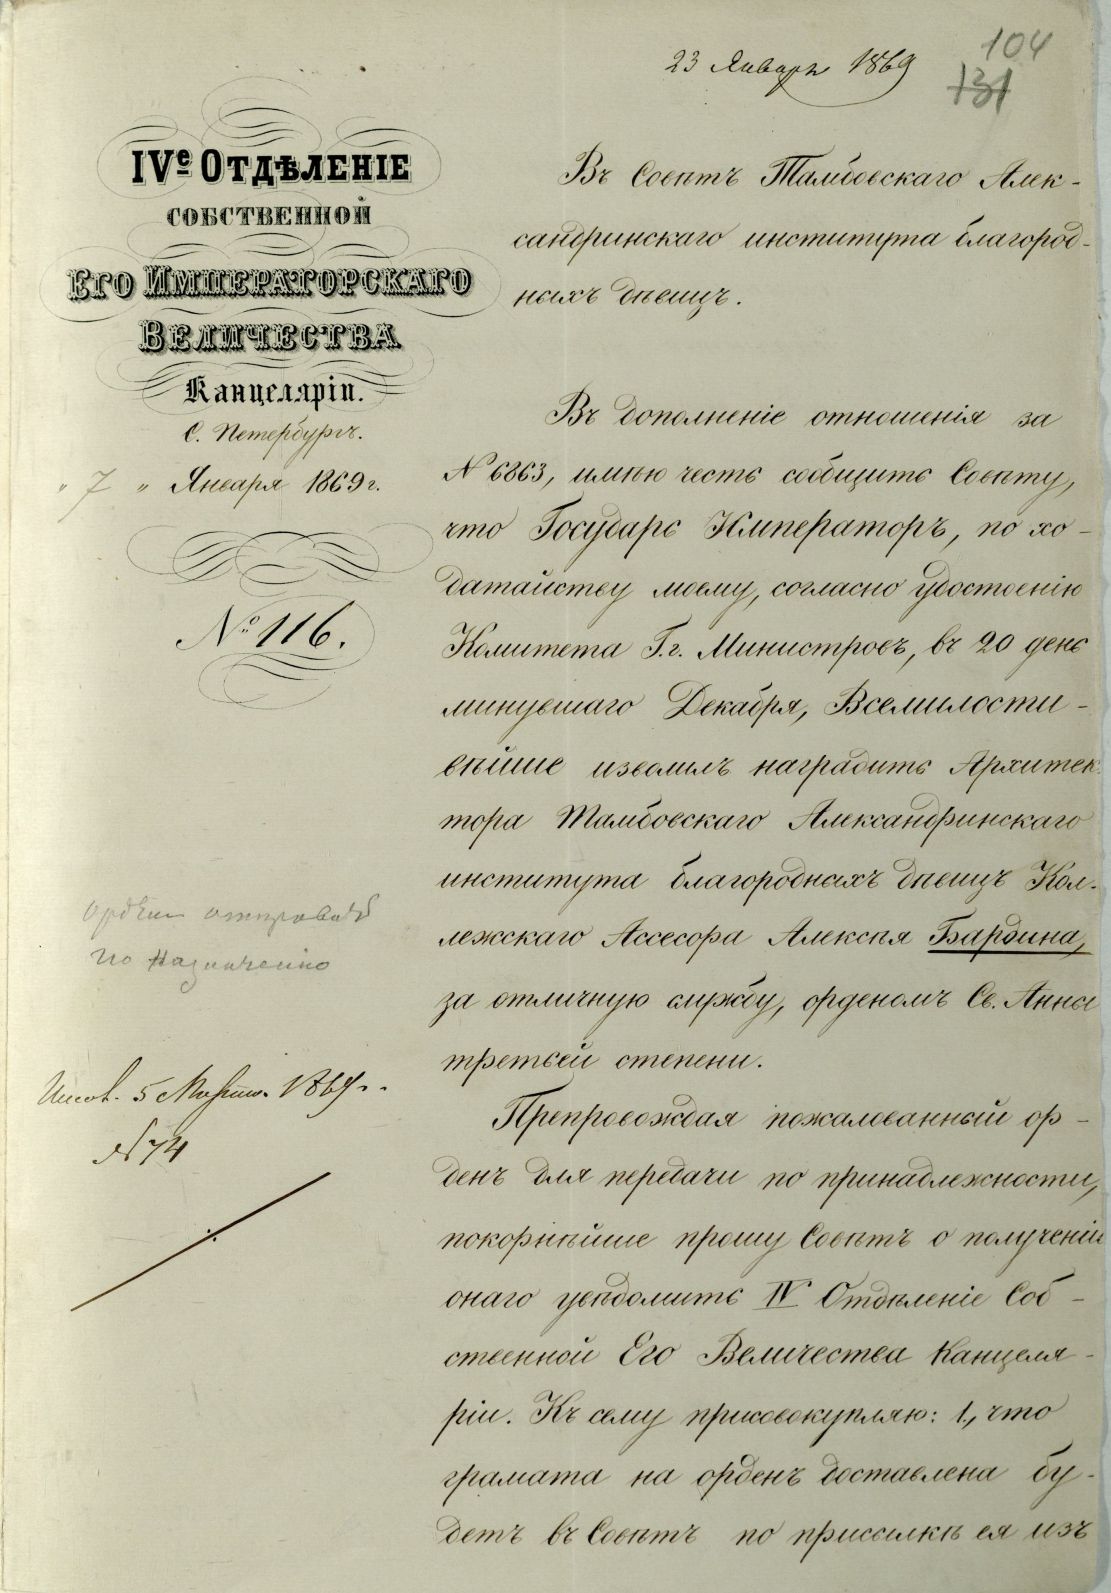 23 Январь 1869
104
131
IVе Отдѣленіе
собственной
Его Императорскаго
Величества
Канцеляріи.
С. Петербургъ.
„ 7 „ Января 1869 г.
№ 116.
Въ Совѣтъ Тамбовскаго Алек-
сандринскаго института благород-
ныхъ дѣвицъ.
Въ дополненіе отношенія за
№ 6863, имѣю честь сообщить Совѣту,
что Государь Императоръ, по хо-
датайству моему, согласно удостоенію
Комитета Г.г. Министровъ, въ 20 день
минувшаго Декабря, Всемилости-
вѣйше изволилъ наградить Архитек-
тора Тамбовскаго Александринскаго
института благородныхъ дѣвицъ Кол-
лежскаго Ассесора Алексѣя Бардина,
за отличную службу, орденомъ Св. Анны
третьей степени.
Препровождая пожалованный ор-
денъ для передачи по принадлежности,
покорнѣйше прошу Совѣтъ о полученіи
онаго увѣдомить IV Отдѣленіе Соб-
ственной Его Величества Канцеля-
ріи. Къ сему присовокупляю: 1, что
грамата на орденъ доставлена бу-
детъ въ Совѣтъ по присылкѣ ея изъ
Орденъ отправить
по назначенію
5 Марта 1869 г.
№ 74